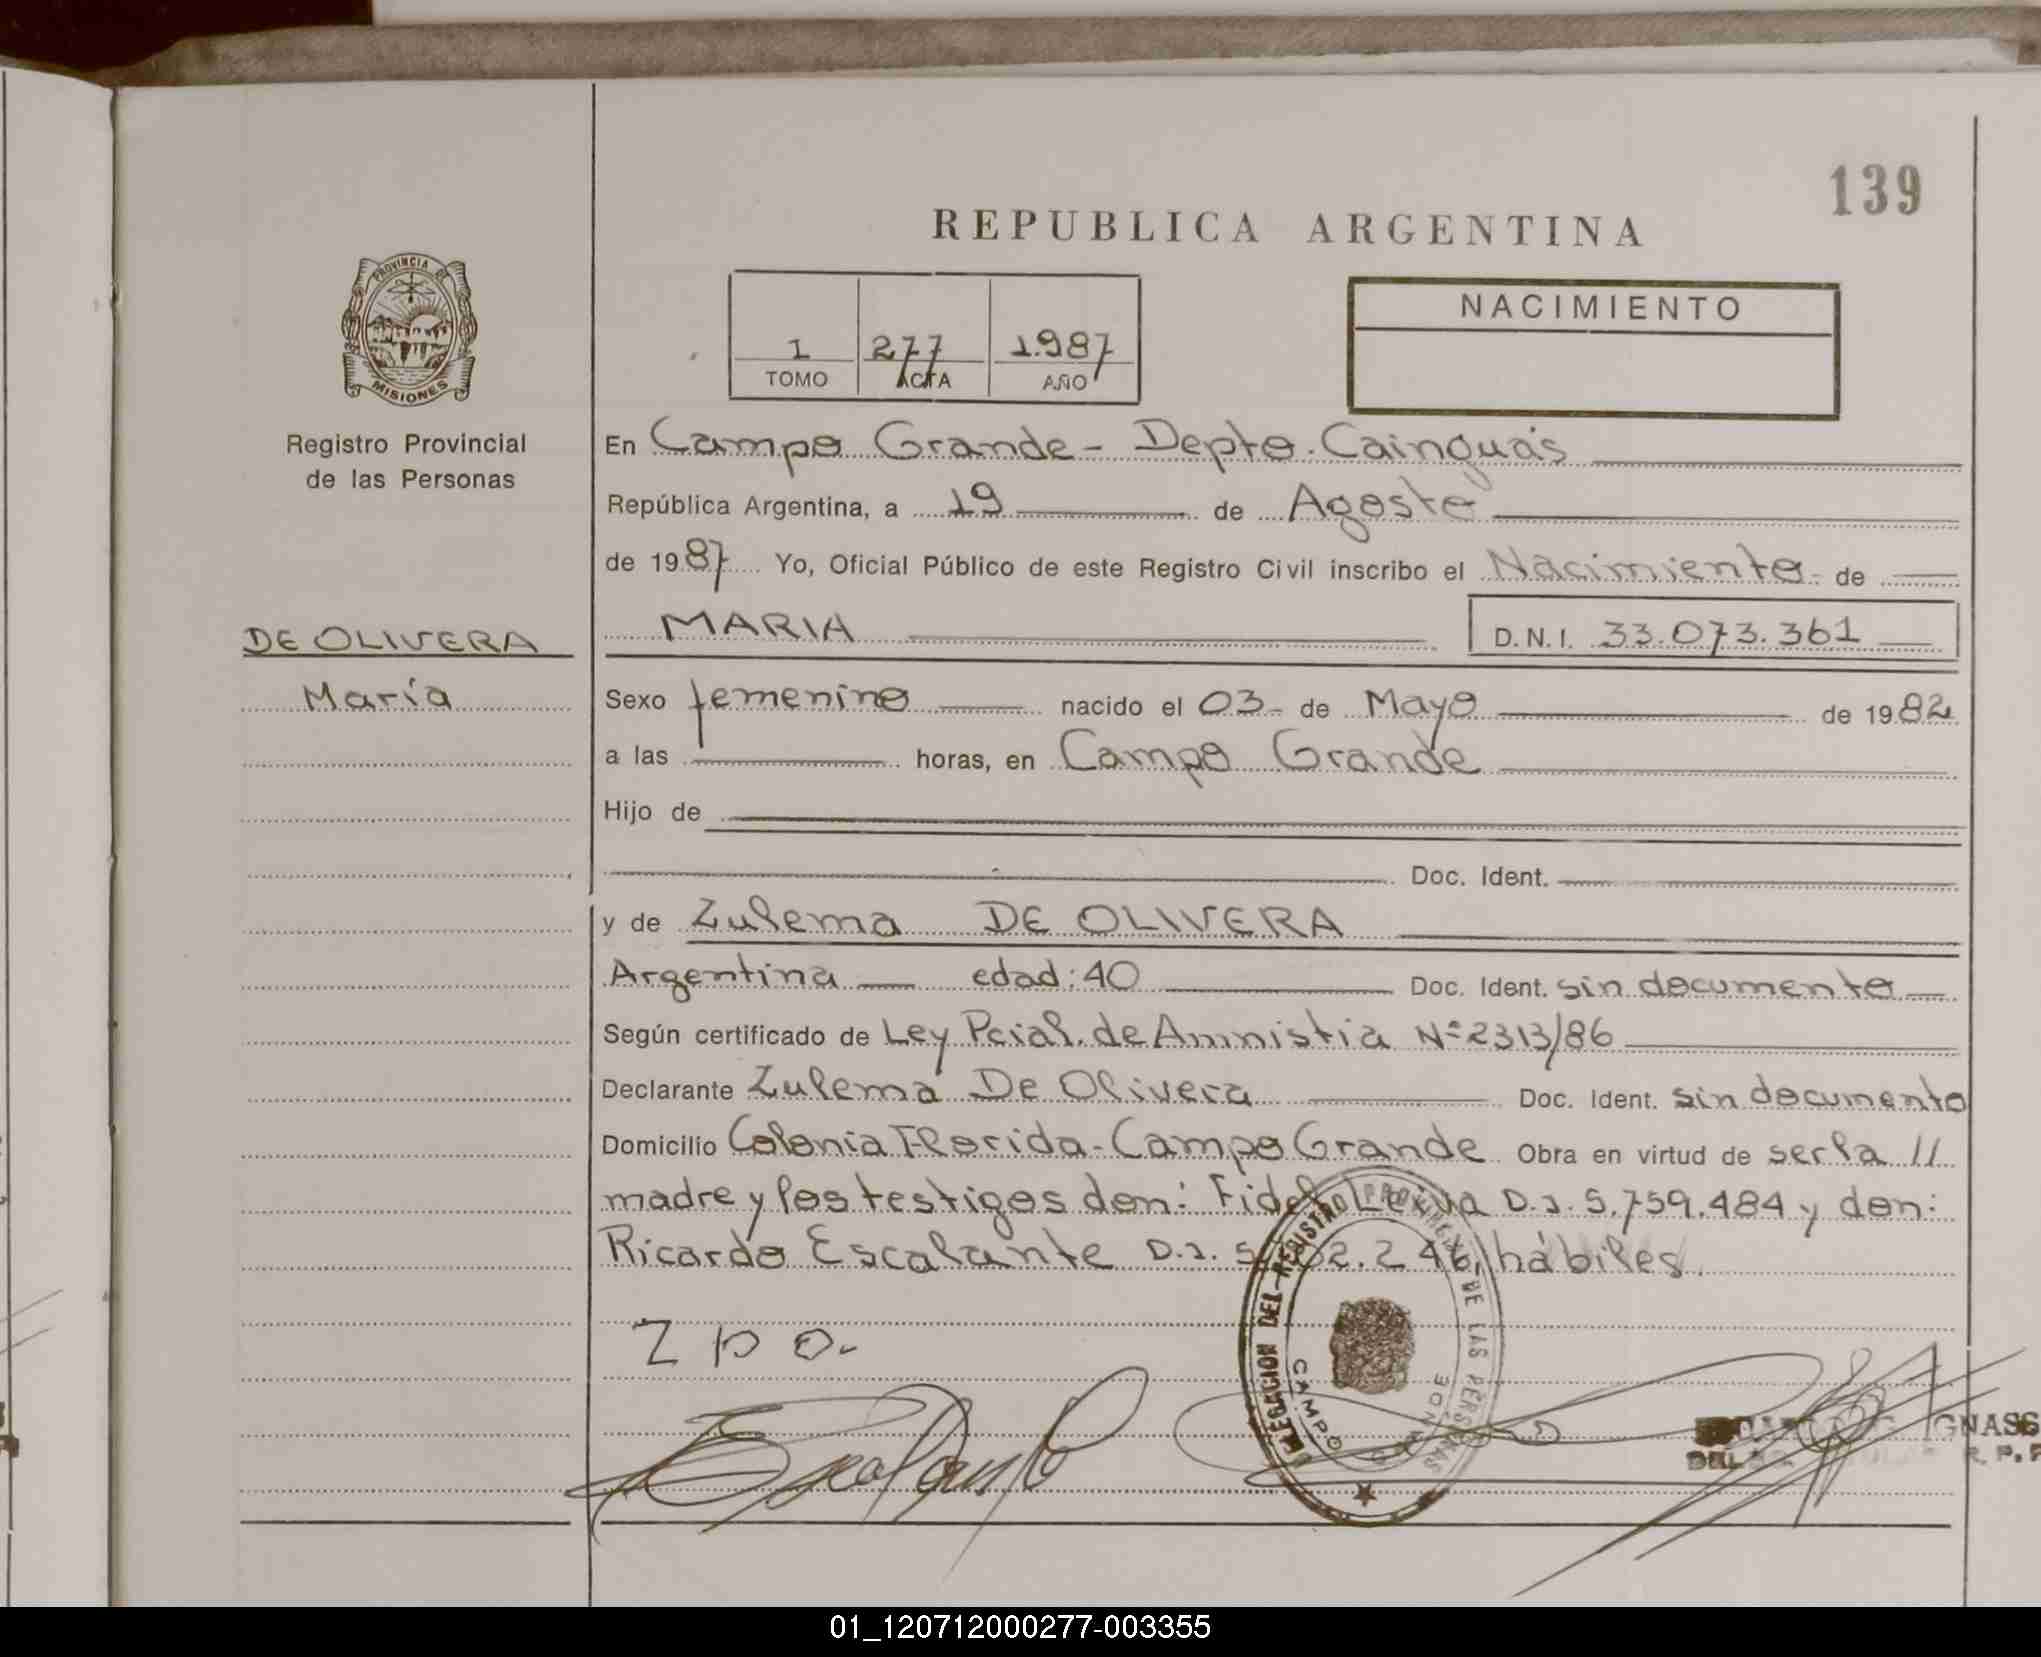 139
REPUBLICA ARGENTINA
PROVINCIA DE
MISIONES
Registro Provincial
de las Personas
1 277 1.987
TOMO ACTA AÑO
NACIMIENTO
En Campo Grande - Depto. Cainguás
República Argentina, a 19 de Agosto
de 1987 Yo, Oficial Público de este Registro Civil inscribo el Nacimiento de
DE OLIVERA
María
MARIA D.N.I. 33.073.361
Sexo femenino nacido el 03 de Mayo de 1982
a las horas, en Campo Grande
Hijo de
Doc. Ident.
y de Zulema DE OLIVERA
Argentina edad: 40 Doc. Ident. sin documento
Según certificado de Ley Pcial. de Amnistia Nº 2313/86
Declarante Zulema De Olivera Doc. Ident. sin documento
Domicilio Colonia Florida - Campo Grande Obra en virtud de ser la //
madre y los testigos don: Leiva D.I. 5.759.484 y don:
Ricardo Escalante D.I. hábiles.
Z D O.
Escalante
DELEGACION DEL REGISTRO PROVINCIAL DE LAS PERSONAS
CAMPO GRANDE
GNASS
DEL R. P. P
01_120712000277-003355